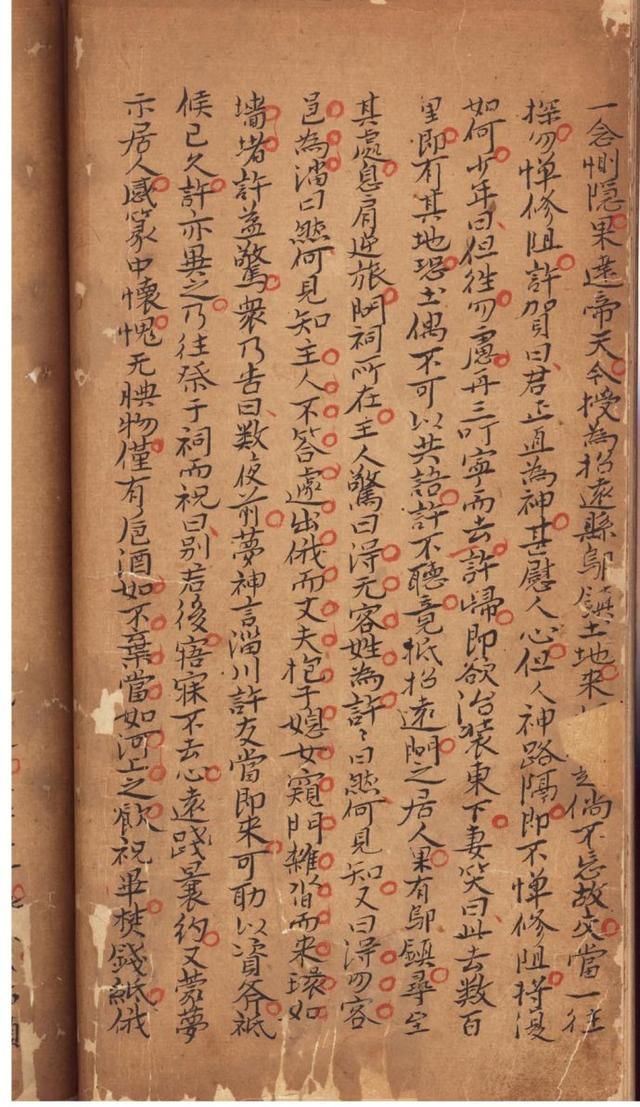 一念惻隠果達帝天今授為招遠縣鄔鎮土地來倘不忘故交當一往
探勿憚修阻許賀曰君正直為神甚慰人心但人神路隔即不憚修阻将復
如何少年曰但往勿慮再三叮寧而去許歸即欲治装東下妻笑曰此去数百
里即有其地恐土偶不可以共語許不聽竟抵招遠問之居人果有鄔鎮尋至
其處息肩逆旅問祠所在主人驚曰得无客姓為許〻曰然何見知又曰得勿客
邑為淄曰然何見知主人不答遽出俄而丈夫抱子媳女窺門雜沓而來環如
墻堵許益驚衆乃告曰数夜前夢神言淄川許友當即来可助以資斧祗
候已久許亦異之乃往祭于祠而祝曰别君後寤寐不去心遠踐曩約又蒙夢
示居人感篆中懷愧无腆物僅有卮酒如不棄當如河上之飲祝畢焚錢紙俄